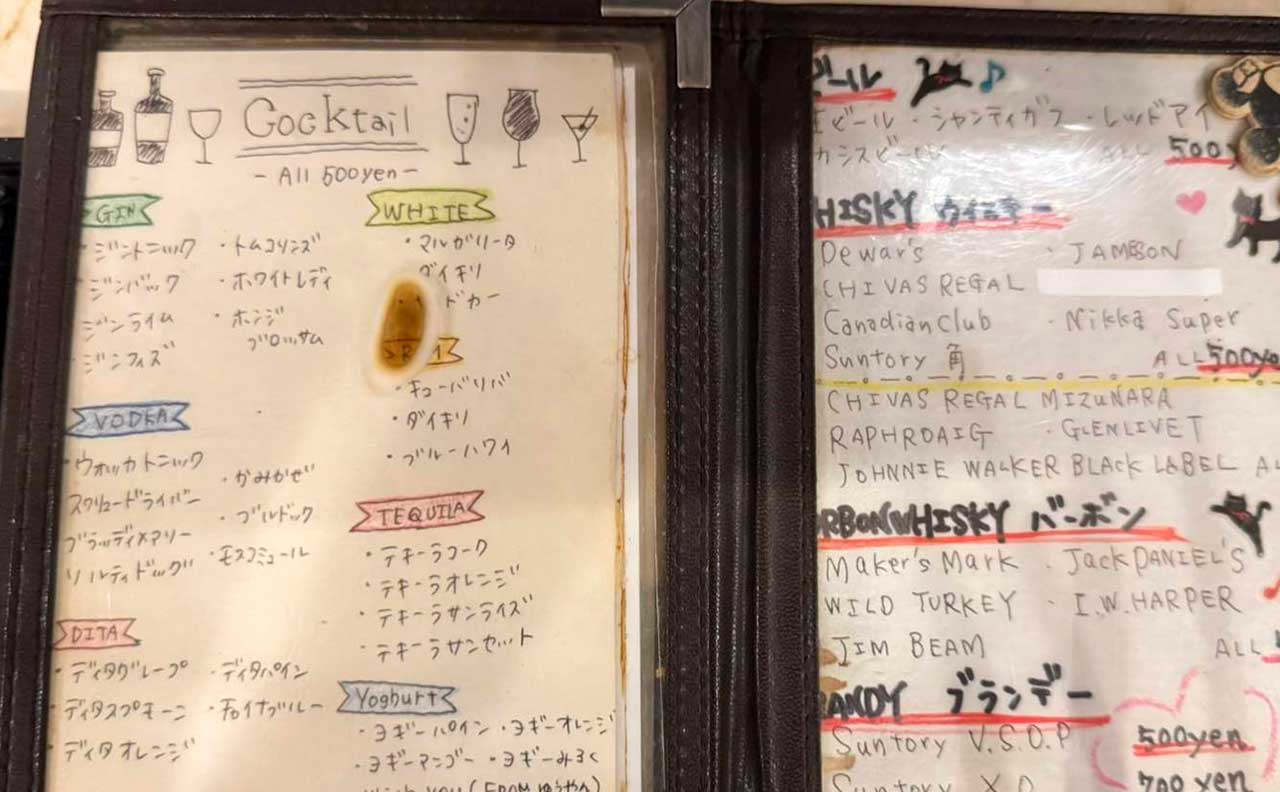 Cocktail
- All 500yen -
GIN
・ジントニック ・トムコリンズ
・ジンバック ・ホワイトレディ
・ジンライム ・オレンジ
ブロッサム
・ジンフィズ
VODKA
・ウォッカトニック
・かみかぜ
スクリュードライバー
・ブルドッグ
ブラッディメアリー
・モスコミュール
ソルティドッグ
DITA
・ディタグレープ ・ディタパイン
・ディタスプモーニ ・チャイナブルー
・ディタオレンジ
WHITE
・マルガリータ
ダイキリ
ドカー
・キューバリバ
・ダイキリ
・ブルーハワイ
TEQUILA
・テキーラコーク
・テキーラオレンジ
・テキーラサンライズ
・テキーラサンセット
Yoghurt
・ヨギーパイン ・ヨギーオレンジ
・ヨギーマンゴー ・ヨギーみるく
ビール
ビール・シャンディガフ・レッドアイ
カシスビール ALL 500y
HISKY ウイスキー
Dewar's ・JAMESON
CHIVAS REGAL
Canadian Club ・Nikka Super
Suntory 角 ALL 500ye
CHIVAS REGAL MIZUNARA
RAPHROAIG ・GLENLIVET
JOHNNIE WALKER BLACK LABEL AL
RBONWHISKY バーボン
Maker's Mark ・Jack DANIEL'S
WILD TURKEY ・I.W.HARPER
JIM BEAM ALL
ANDY ブランデー
Suntory V.S.O.P 500yen
Suntory X.O 700yen